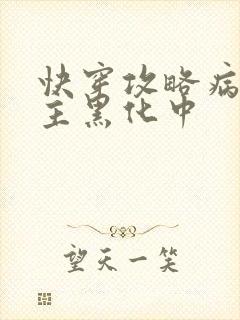 快穿攻略病
主黑化中
望天一笑